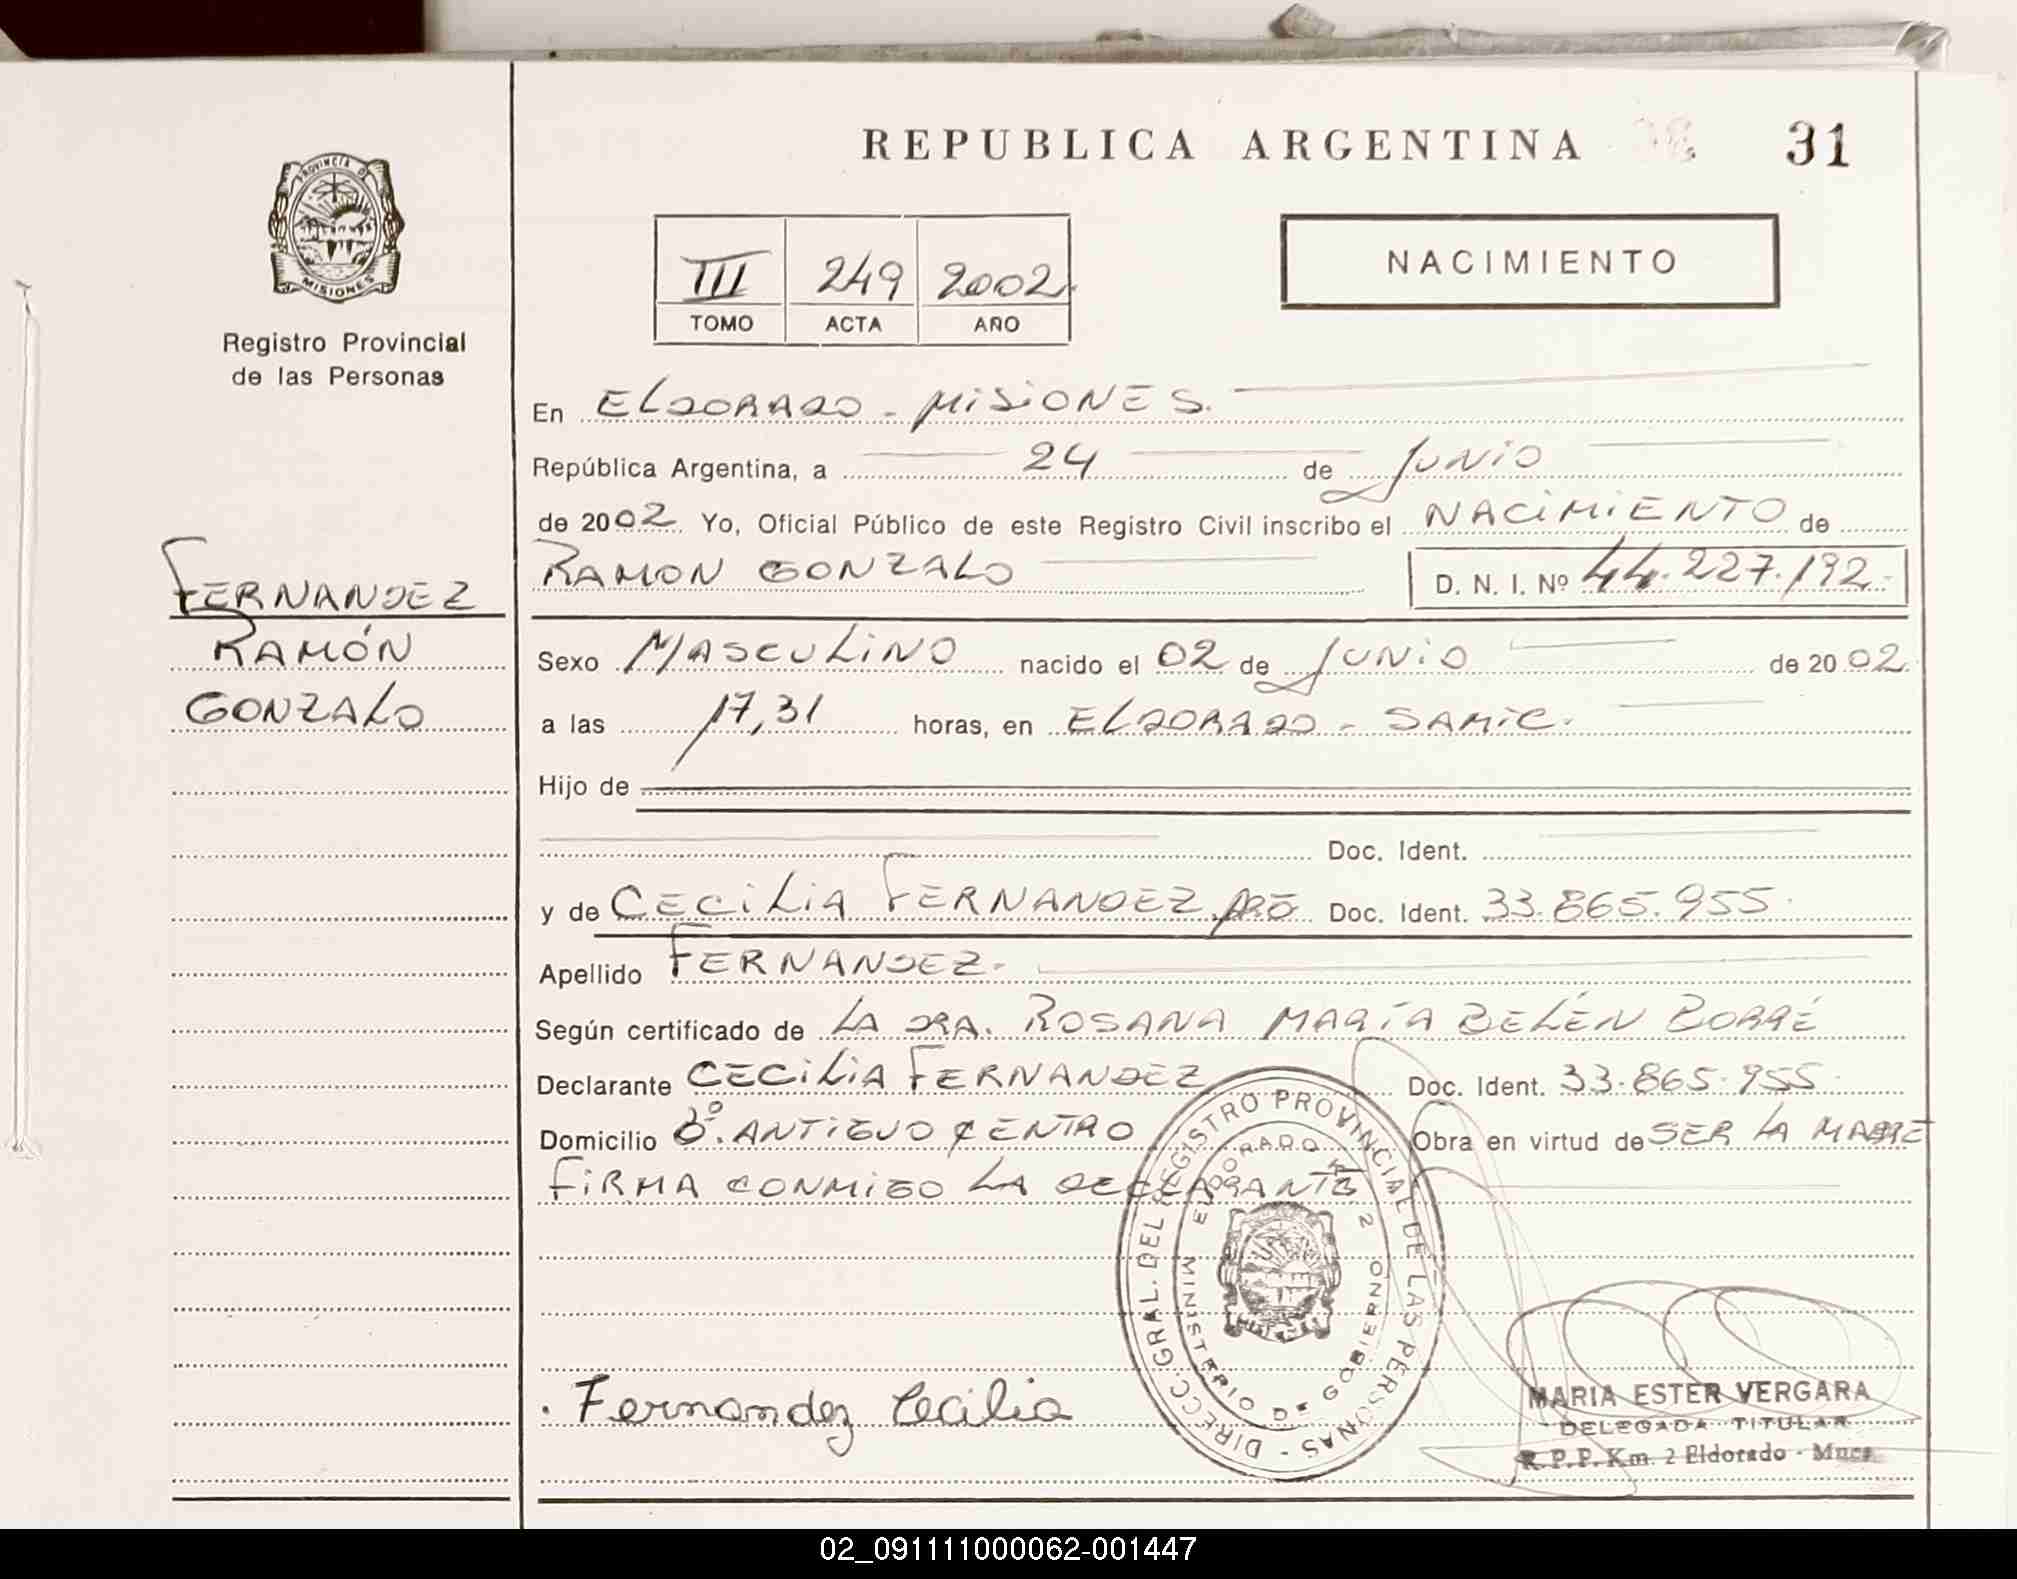 REPUBLICA ARGENTINA
31
PROVINCIA DE
MISIONES
Registro Provincial
de las Personas
NACIMIENTO
III 249 2002
TOMO ACTA AÑO
En ELDORADO - MISIONES.
República Argentina, a 24 de JUNIO
de 2002 Yo, Oficial Público de este Registro Civil inscribo el NACIMIENTO de
RAMON GONZALO D. N. I. Nº 44.227.192.-
FERNANDEZ
RAMÓN
GONZALO
Sexo MASCULINO nacido el 02 de JUNIO de 2002.
a las 17,31 horas, en ELDORADO - SAMIC.
Hijo de
Doc. Ident.
y de CECILIA FERNANDEZ Doc. Ident. 33.865.955.
Apellido FERNANDEZ.
Según certificado de LA DRA. ROSANA MARÍA BELÉN BORRÉ
Declarante CECILIA FERNANDEZ Doc. Ident. 33.865.955.
Domicilio Bº. ANTIGUO CENTRO Obra en virtud de SER LA MADRE
FIRMA CONMIGO LA DECLARANTE
DIRECC. GRAL. DEL REGISTRO PROVINCIAL DE LAS PERSONAS -
ELDORADO KM 2
MINISTERIO DE GOBIERNO
Fernandez Cecilia
MARIA ESTER VERGARA
DELEGADA TITULAR
R.P.P. Km. 2 Eldorado - Mnes.
02_091111000062-001447